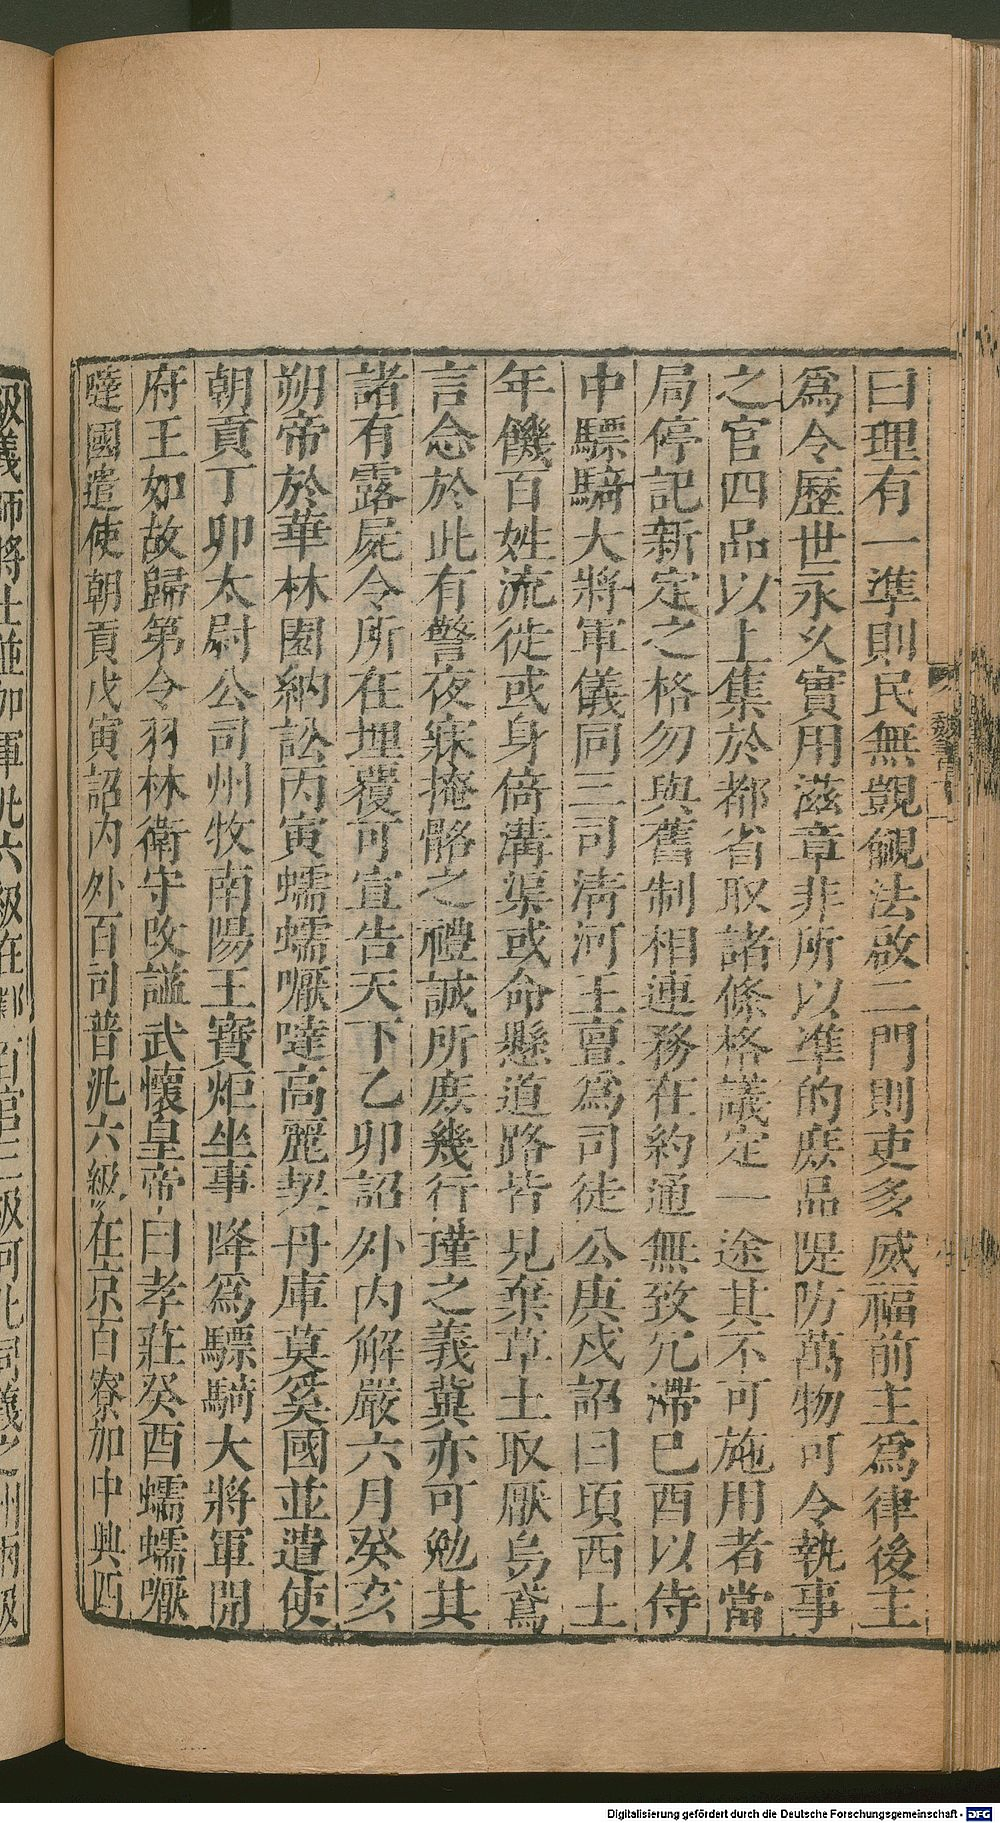 曰理有一準則民無覬覦法啟二門則吏多威福前主爲律後主
爲令歷世永久實用滋章非所以準的庶品隄防萬物可令執事
之官四品以上集於都省取諸條格議定一途其不可施用者當
局停記新定之格勿與舊制相連務在約通無致冗滯己酉以侍
中驃騎大將軍儀同三司淸河王亶爲司徒公庚戍詔曰頃西土
年饑百姓流徙或身倚溝渠或命懸道路皆見棄草土取厭烏鳶
言念於此有警夜寐掩骼之禮誠所庶幾行墐之義冀亦可勉其
諸有露屍令所在埋覆可宣告天下乙卯詔外内解嚴六月癸亥
朔帝於華林園納訟丙寅蠕蠕嚈噠高麗契丹庫莫奚國並遣使
朝貢丁卯太尉公司州牧南陽王寶炬坐事降爲驃騎大將軍開
府王如故歸第令羽林衛守改謚武懷皇帝曰孝莊癸酉蠕蠕嚈
噠國遣使朝貢戊寅詔内外百司普汎六級在京百寮加中興四
級義師將士並加軍汎六級在鄴百官三級河北同義之州兩級
Digitalisierung gefördert durch die Deutsche Forschungsgemeinschaft - DFG